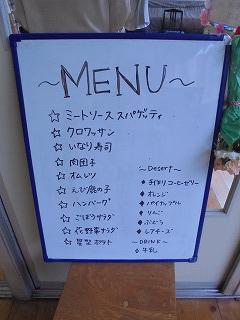 ~MENU~
☆ ミートソース スパゲッティ
☆ クロワッサン
☆ いなり寿司
☆ 肉団子
☆ オムレツ
☆ えび鹿の子
☆ ハンバーグ
☆ ごぼうサラダ
☆ 花野菜サラダ
☆ 星型ポテト
~Desert~
♦ 手作りコーヒーゼリー
♦ オレンジ
♦ パイナップル
♦ りんご
♦ ぶどう
♦ レアチーズ
~DRINK~
♦ 牛乳